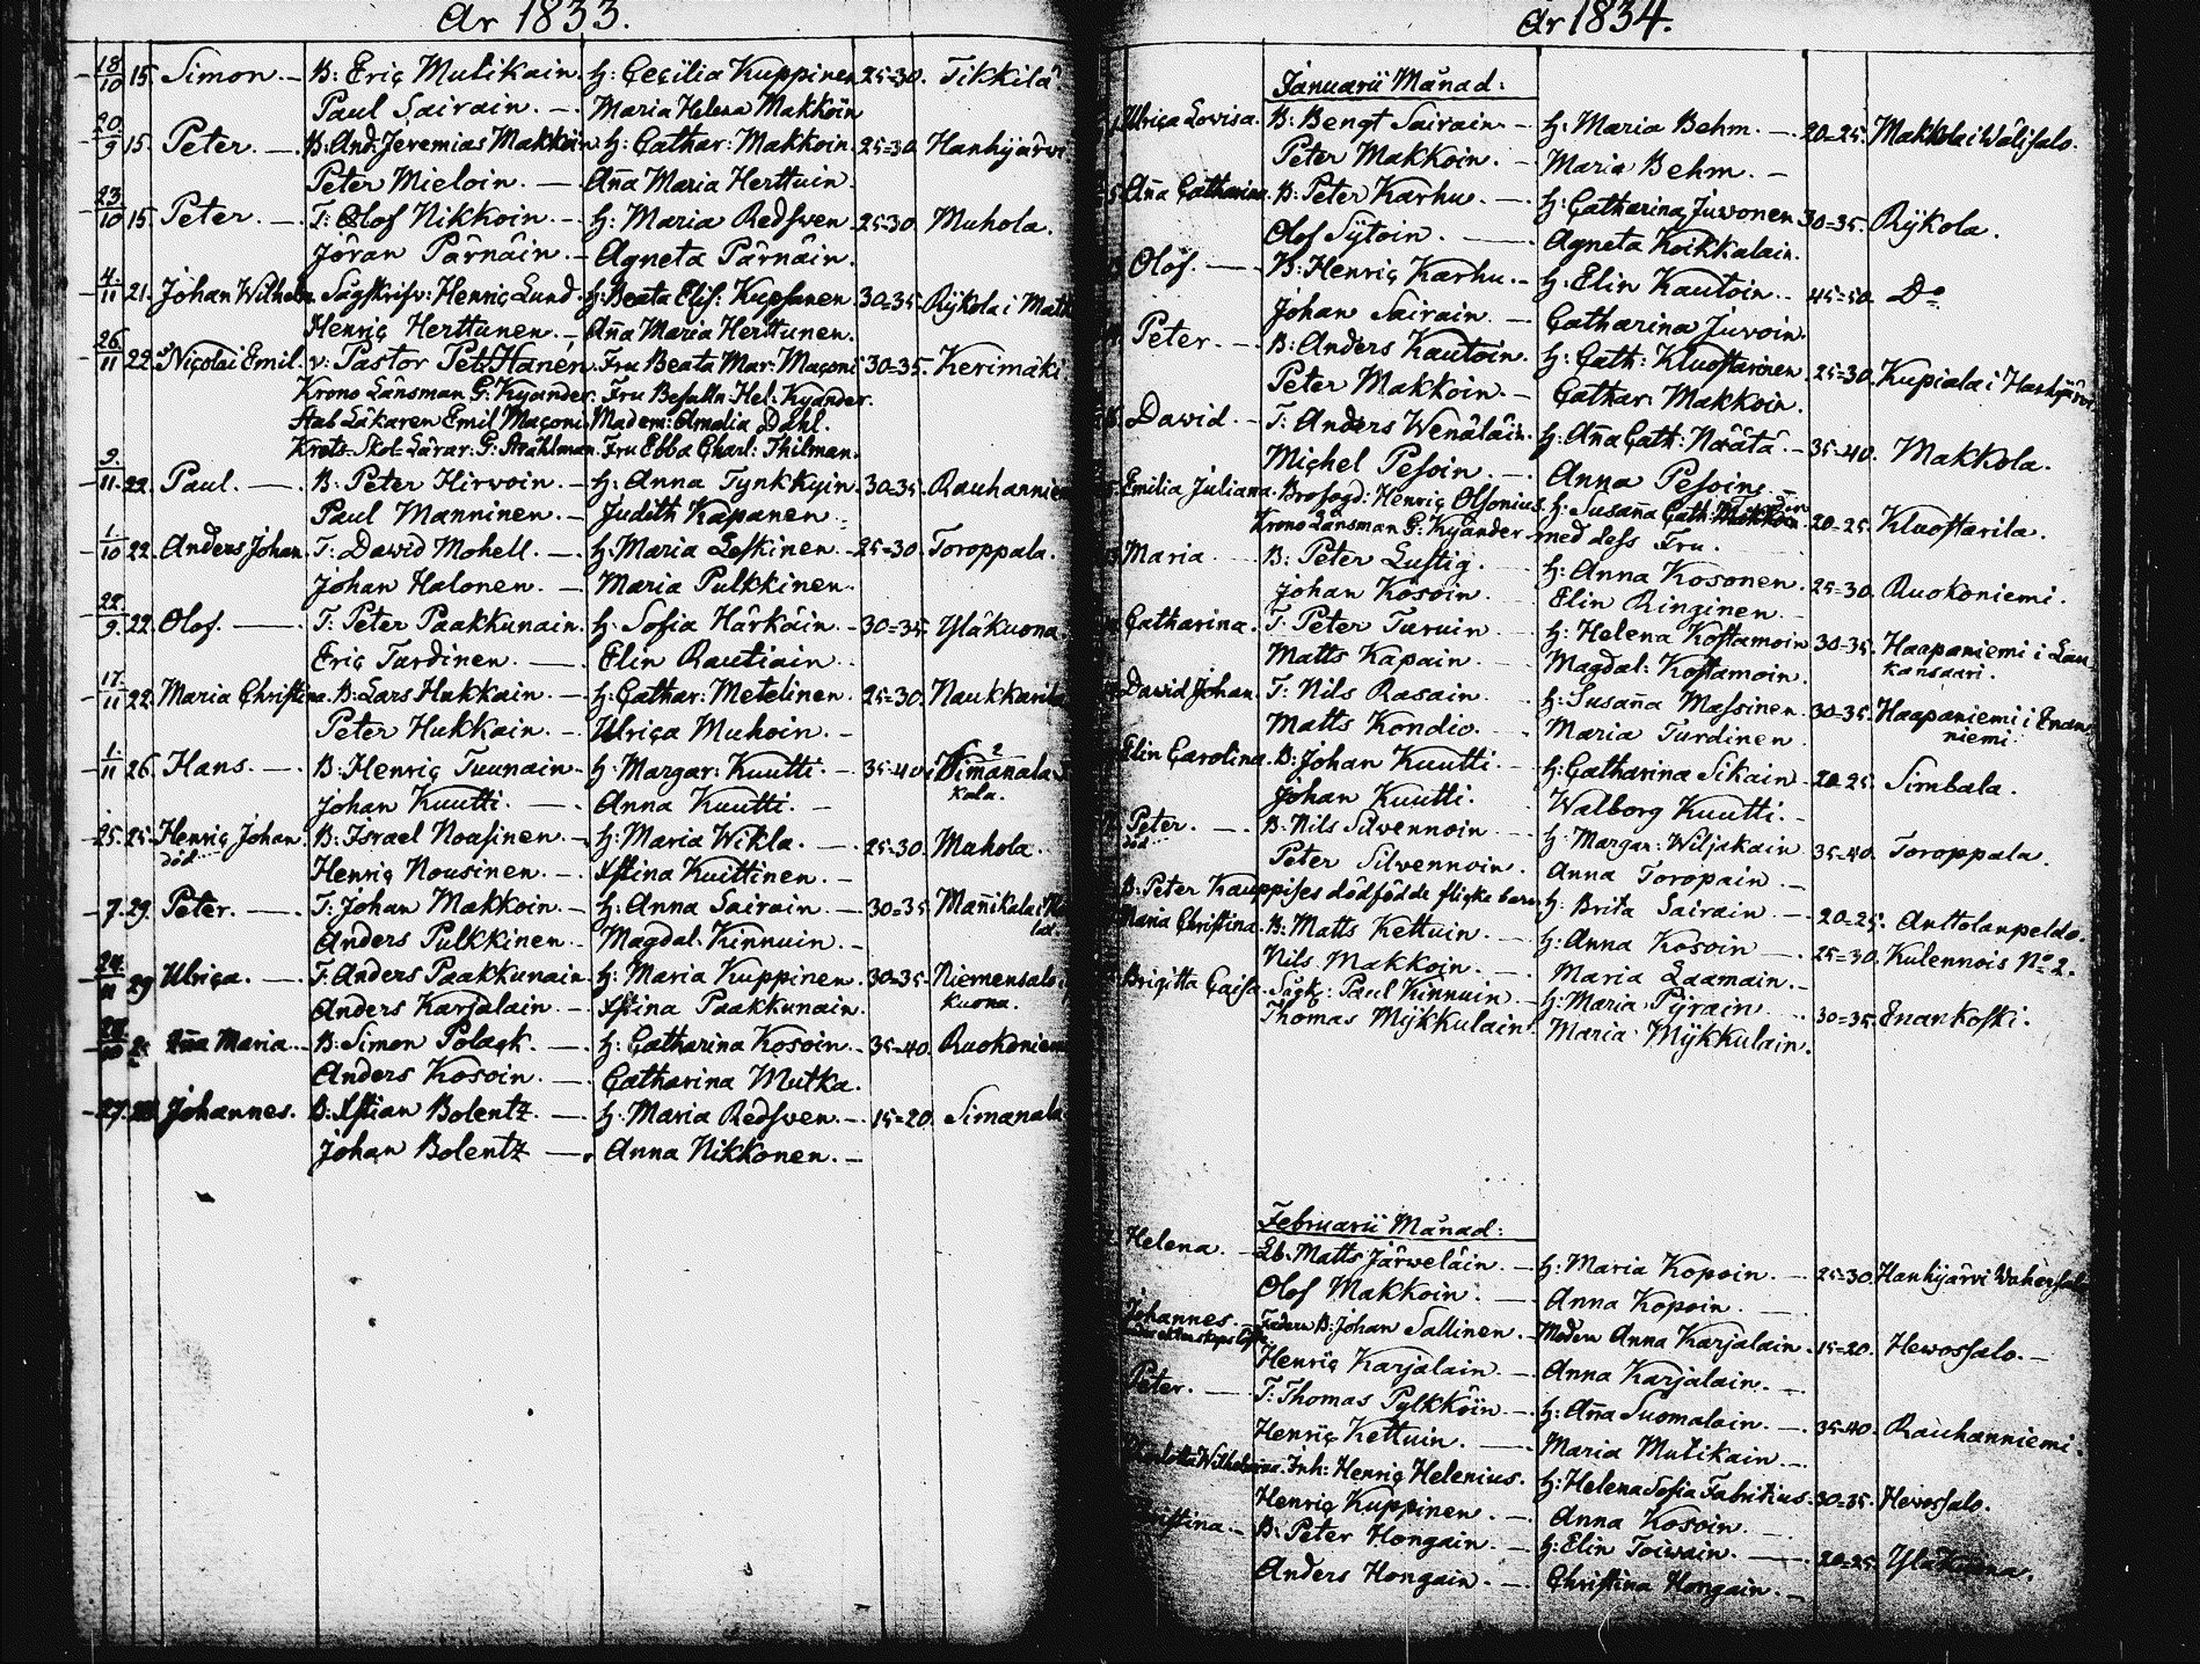 År 1833.
18/10 15. Simon. — B: Eric Mutikain. H: Cecilia Kuppinen 25=30. Tikkilä
Paul Sairain. — Maria Helena Makkoin
20/9 15. Peter. — B: And: Jeremias Makkoin. H: Cathar: Makkoin. 25=30. Hanhijärvi
Peter Mieloin. — Aña Maria Herttuin.
23/10 15. Peter. — T: Olof Nikkoin. — H: Maria Redsven 25=30. Muhola.
Jöran Pärnäin. — Agneta Pärnäin.
4./11 21. Johan Wilhelm. Sågskrifv: Henric Lund. H: Beata Elis: Kupsanen 30=35. Rykola i Matk
Henric Herttunen. — Aña Maria Herttunen.
26/11 22. Nicolai Emil. v: Pastor Pet: Hanén. Fru Beata Mar: Maconi 30=35. Kerimäki.
Krono Länsman G: Kyander. Fru Befalln: Hel: Kyander.
Stab Läkaren Emil Maconi. Madem: Amalia Dahl.
Krets-Skol-Lärar: G: Stråhlman. Fru Ebba Charl: Thilman.
9./11. 22. Paul. — B: Peter Hirvoin. — H: Anna Tynkkyin. 30=35. Rauhannien
Paul Manninen. — Judith Kapanen.
1/10 22. Anders Johan. T: Dawid Mohell. — H: Maria Leskinen. — 25=30. Toroppala.
Johan Halonen. — Maria Pulkkinen.
22./9. 22. Olof. — T: Peter Paakkunain. H: Sofia Härkäin. — 30=35. Yläkuona.
Eric Turdinen. — Elin Rautiain.
17./11 22. Maria Christina. B: Lars Hukkain. — H: Cathar: Metelinen. 25=30. Naukkarila
Peter Hukkain. — Ulrica Muhoin. —
1./11 26. Hans. — B: Henric Tuunain. H: Margar: Kuutti. — 35=40.
kala.
Johan Kuutti. — Anna Kuutti. —
25. 25. Henric Johan. B: Israel Noasinen. — H: Maria Wikla. — 25=30. Muhola.
död
Henric Nousinen. — Xstina Kuittinen. —
7. 29. Peter. — T: Johan Makkoin. — H: Anna Sairain. — 30=35. Mañikala i
Anders Pulkkinen. — Magdal: Kinnuin. —
24./11 29 Ulrica. — T: Anders Paakkunain. H: Maria Kuppinen. 30=35. Niemensalo
kuona.
Anders Karjalain. — Xstina Paakkunain.
Aña Maria. — B: Simon Polack. — H: Catharina Kosoin. — 35=40. Ruokoniem
Anders Kosoin. — Catharina Mutka.
27. Johannes. B: Xstian Bolentz. — H: Maria Redsven. — 15=20. Simanala
Johan Bolentz — Anna Nikkonen. —
År 1834.
Januarii Månad:
Ulrica Lovisa. B: Bengt Sairain. — H: Maria Behm. — 20=25. Makkola i Wälisalo.
Peter Makkoin. — Maria Behm. —
5. Aña Catharina. B: Peter Karhu. — H: Catharina Juvonen 30=35. Rykola.
Olof Sytoin. — Agneta Koikkalain.
Olof. — B: Henric Karhu. — H: Elin Kautoin. — 45=50. Do
Johan Sairain. — Catharina Juvoin.
Peter. — B: Anders Kautoin. H: Cath: Kluostarinen. 25=30. Kupiala i Hanhijärvi
Peter Makkoin. — Cathar: Makkoin.
Dawid. — T: Anders Wenäläin. H: Aña Cath: Näätä. — 35=40. Makkola.
Michel Pesoin. — Anna Pesoin. —
Emilia Juliana. Brofogd: Henric Olsonius. H: Susaña Cath: 20=25. Kluostarila.
Krono Länsman G: Kyander — med dess Fru.
Maria B: Peter Lustig. H: Anna Kosonen. 25=30. Ruokoniemi.
Johan Kosoin. Elin Ringinen. —
Catharina. T: Peter Turuin H: Helena Kostamoin 30=35. Haapaniemi i Lau
kansaari.
Matts Kapain. Magdal: Kostamoin.
Dawid Johan. T: Nils Rasain. H: Susaña Massinen. 30=35. Haapaniemi i Enan
niemi.
Matts Kondio. Maria Turdinen.
Elin Carolina. B: Johan Kuutti. — H: Catharina Sikain. 20=25. Simbala.
Johan Kuutti. Walborg Kuutti. —
Peter. — B: Nils Silvennoin. H: Margar: Wiljakain 35=40. Toroppala.
död
Peter Silvennoin. Anna Toropain. —
B: Peter Kauppises dödfödde flicke barn. H: Brita Sairain. — 20=25. Anttolanpeldo.
Maria Christina. B: Matts Kettuin. — H: Anna Kosoin 25=30. Kulennois No 2.
Nils Makkoin. — Maria Laamain. —
Brigitta Caisa. Sågk: Paul Kinnuin. — H: Maria Pyrain. 30=35. Enankoski.
Thomas Mykkulain. Maria Mykkulain.
Februarii Månad:
Helena. — Lb: Matts Järweläin. — H: Maria Kopoin. — 25=30. Hanhijärvi
Olof Makkoin. — Anna Kopoin. —
Johannes. — Fadern B: Johan Sallinen. — Modern Anna Karjalain. 15=20. Hevossalo. —
Henric Karjalain. — Anna Karjalain. —
Peter. — T: Thomas Pylkköin. — H: Aña Suomalain. — 35=40. Rauhanniemi.
Henric Kettuin. — Maria Mutikain. —
Wilhelmina. Inh: Henric Helenius. H: Helena Sofia Fabritius. 30=35. Hevossalo.
Henric Kuppinen. — Anna Kosoin. —
B: Peter Hongain. — H: Elin Toivain. — 20=25. Yläkuona.
Anders Hongain. — Christina Hongain. —